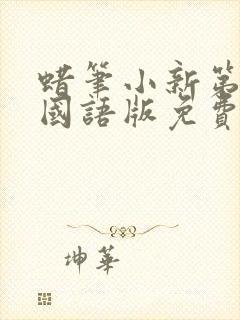 蜡筆小新第
國語版免費
坤華